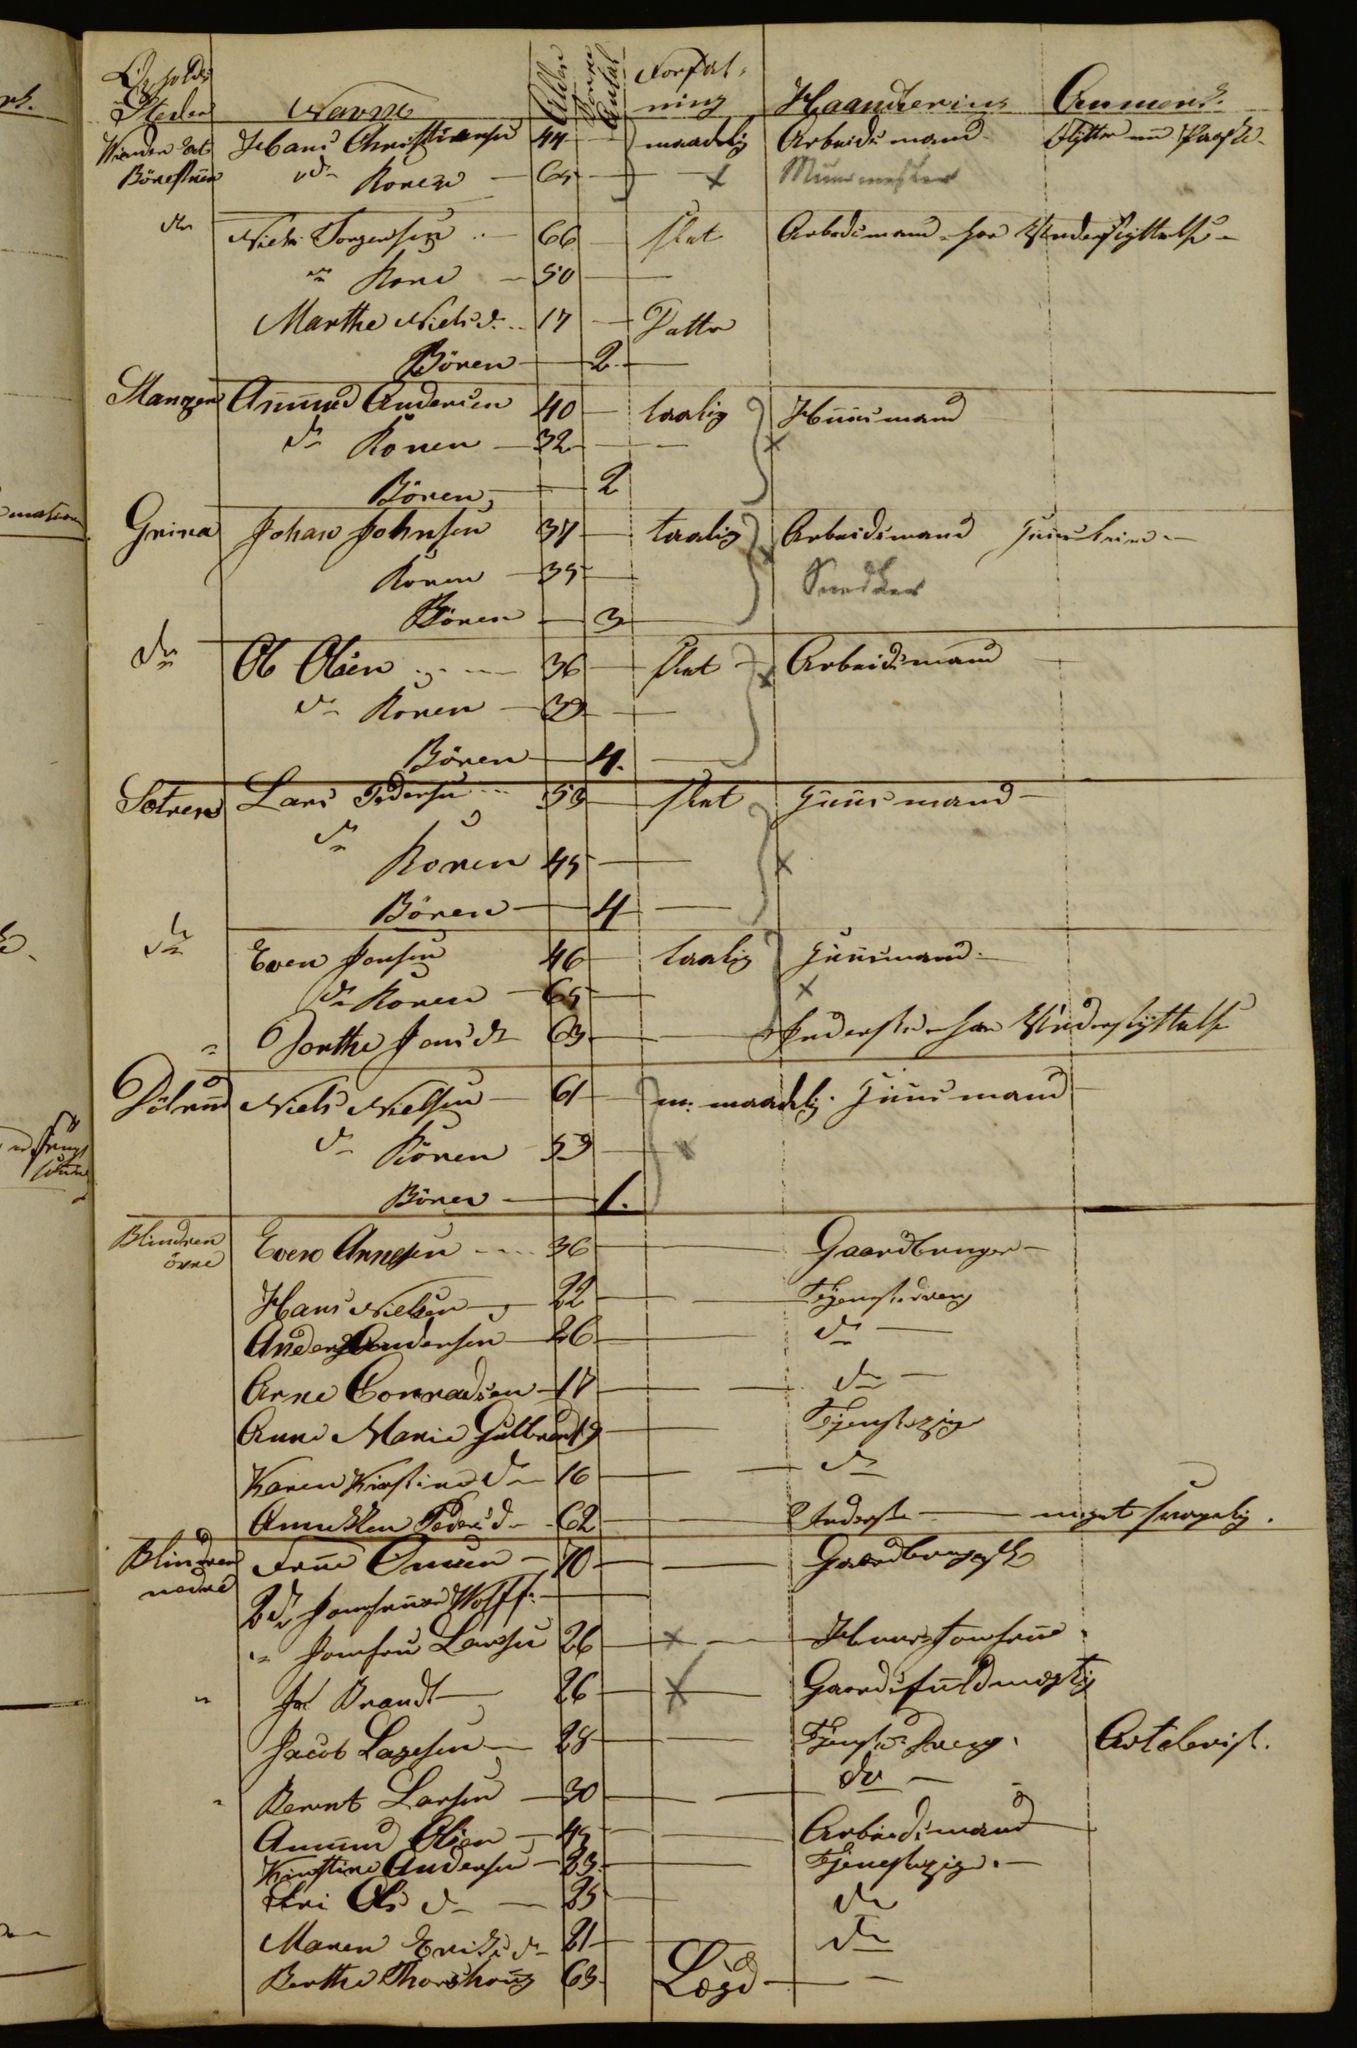 Opholds Steder Navne Alder Börne Antal Forfatning Haandtering Anmerk.
Hans Christiansen 44 maadelig Arbeidsmand
do Konen 65 Muurmester
do Niels Torgersen 66 slet Arbeidsmand har Understyttelse
do Kone 50
Marthe Nielsd. 17 Datter
Bören 2
Stangen Asmund Andersen 40 taalig Huusmand
do Konen 32
Bören 2
Grina Johan Johnsen 37 taalig Arbeidsmand
Konen 35 Snedker
Bören 3
do Ole Olsen 36 slet Arbeidsmand
do Konen 39
Bören 4.
Sætren Lars Pedersen 53 slet Huusmand
do Konen 45
Bören 4
do Even Jensen 46 taalig Huusmand
do Konen 65
Dorthe Jensdt 63 Inderste har Understyttelse
Niels Nielsen 61 m: maadelig. Huusmand
do Konen 59
Bören 1.
Blindren övre Even Arnesen 36 Gaardbruger
Hans Nielsen 22 Tjenestedreng
Anders Andersen 26 do
Arne Conradsen 17 do
Anne Marie Gulbrand 19 Tjenestepige
Karen Kirstine do 16 do
Pedersd 62 Inderste noget svagelig.
Blindren nedre Frue 70
2de Jomfruer Wolff
Jomfru Larsen 26 Huusjomfrue
Hr Brandt 26 Gaardsfuldmægtig
Jacob Lagesen 28 Tjenestedreng. Artelerist.
Bernt Larsen 30 do
Amund Olsen 45 Arbeidsmand
Kirstine Andersen 33 Tjenestepige.
Ols d 25 do
Maren Eriksd 21 do
Berthe Thorshoug 63 Lægd